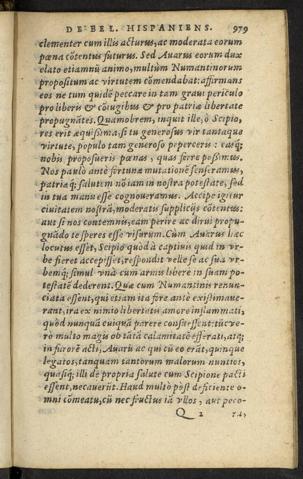 DE BEL. HISPANIENS. 979
clementer cum illis acturus, ac moderata eorum
pœna cõtentus futurus. Sed Auarus eorum dux
elato etiamnũ animo, multùm Numantinorum
propositum ac virtutem cõmendabat: affirmans
eos ne tum quidẽ peccare in tam graui periculo
pro liberis & cõiugibus & pro patriæ libertate
propugnãtes. Quamobrem, inquit ille, ô Scipio,
res erit æquissima, si tu generosus vir tantaque
virtute, populo tam generoso peperceris: easq́;
nobis proposueris pœnas, quas ferre possimus.
Nos paulo antè fortunæ mutationẽ senseramus,
patriæq́; salutem nõ iam in nostra potestate, sed
in tua manu esse cognoueramus. Accipe igitur
ciuitatem nostrã, moderatis supplicijs cõtentus:
aut si nos contemnis, eam perire ac dirui propu-
gnãdo te speres esse visurum. Cùm Auarus hæc
locutus esset, Scipio quòd à captiuis quid in vr-
be fieret accepisset, respondit velle se ac sua vr-
bemq́; simul vnà cum armis libere in suam po-
testatẽ dederent. Quæ cum Numantinis renun-
ciata essent, qui etiam ita feræ antè existimaue-
rant, ira ex nimio libertatis amore inflammati,
quòd nunquã cuiquã parere consueuissent: tũc ve-
rò multo magis ob tãtã calamitatẽ efferati, atq́;
in furorẽ acti, Auarũ ac qui cũ eo erãt, quinque
legatos, tanquam tantorum malorum nuntios,
quasiq́; illi de propria salute cum Scipione pacti
essent, necauerũt. Haud multò pòst deficiente o-
mni cõmeatu, cũ nec fructus iã vllos, aut peco-
Q 2